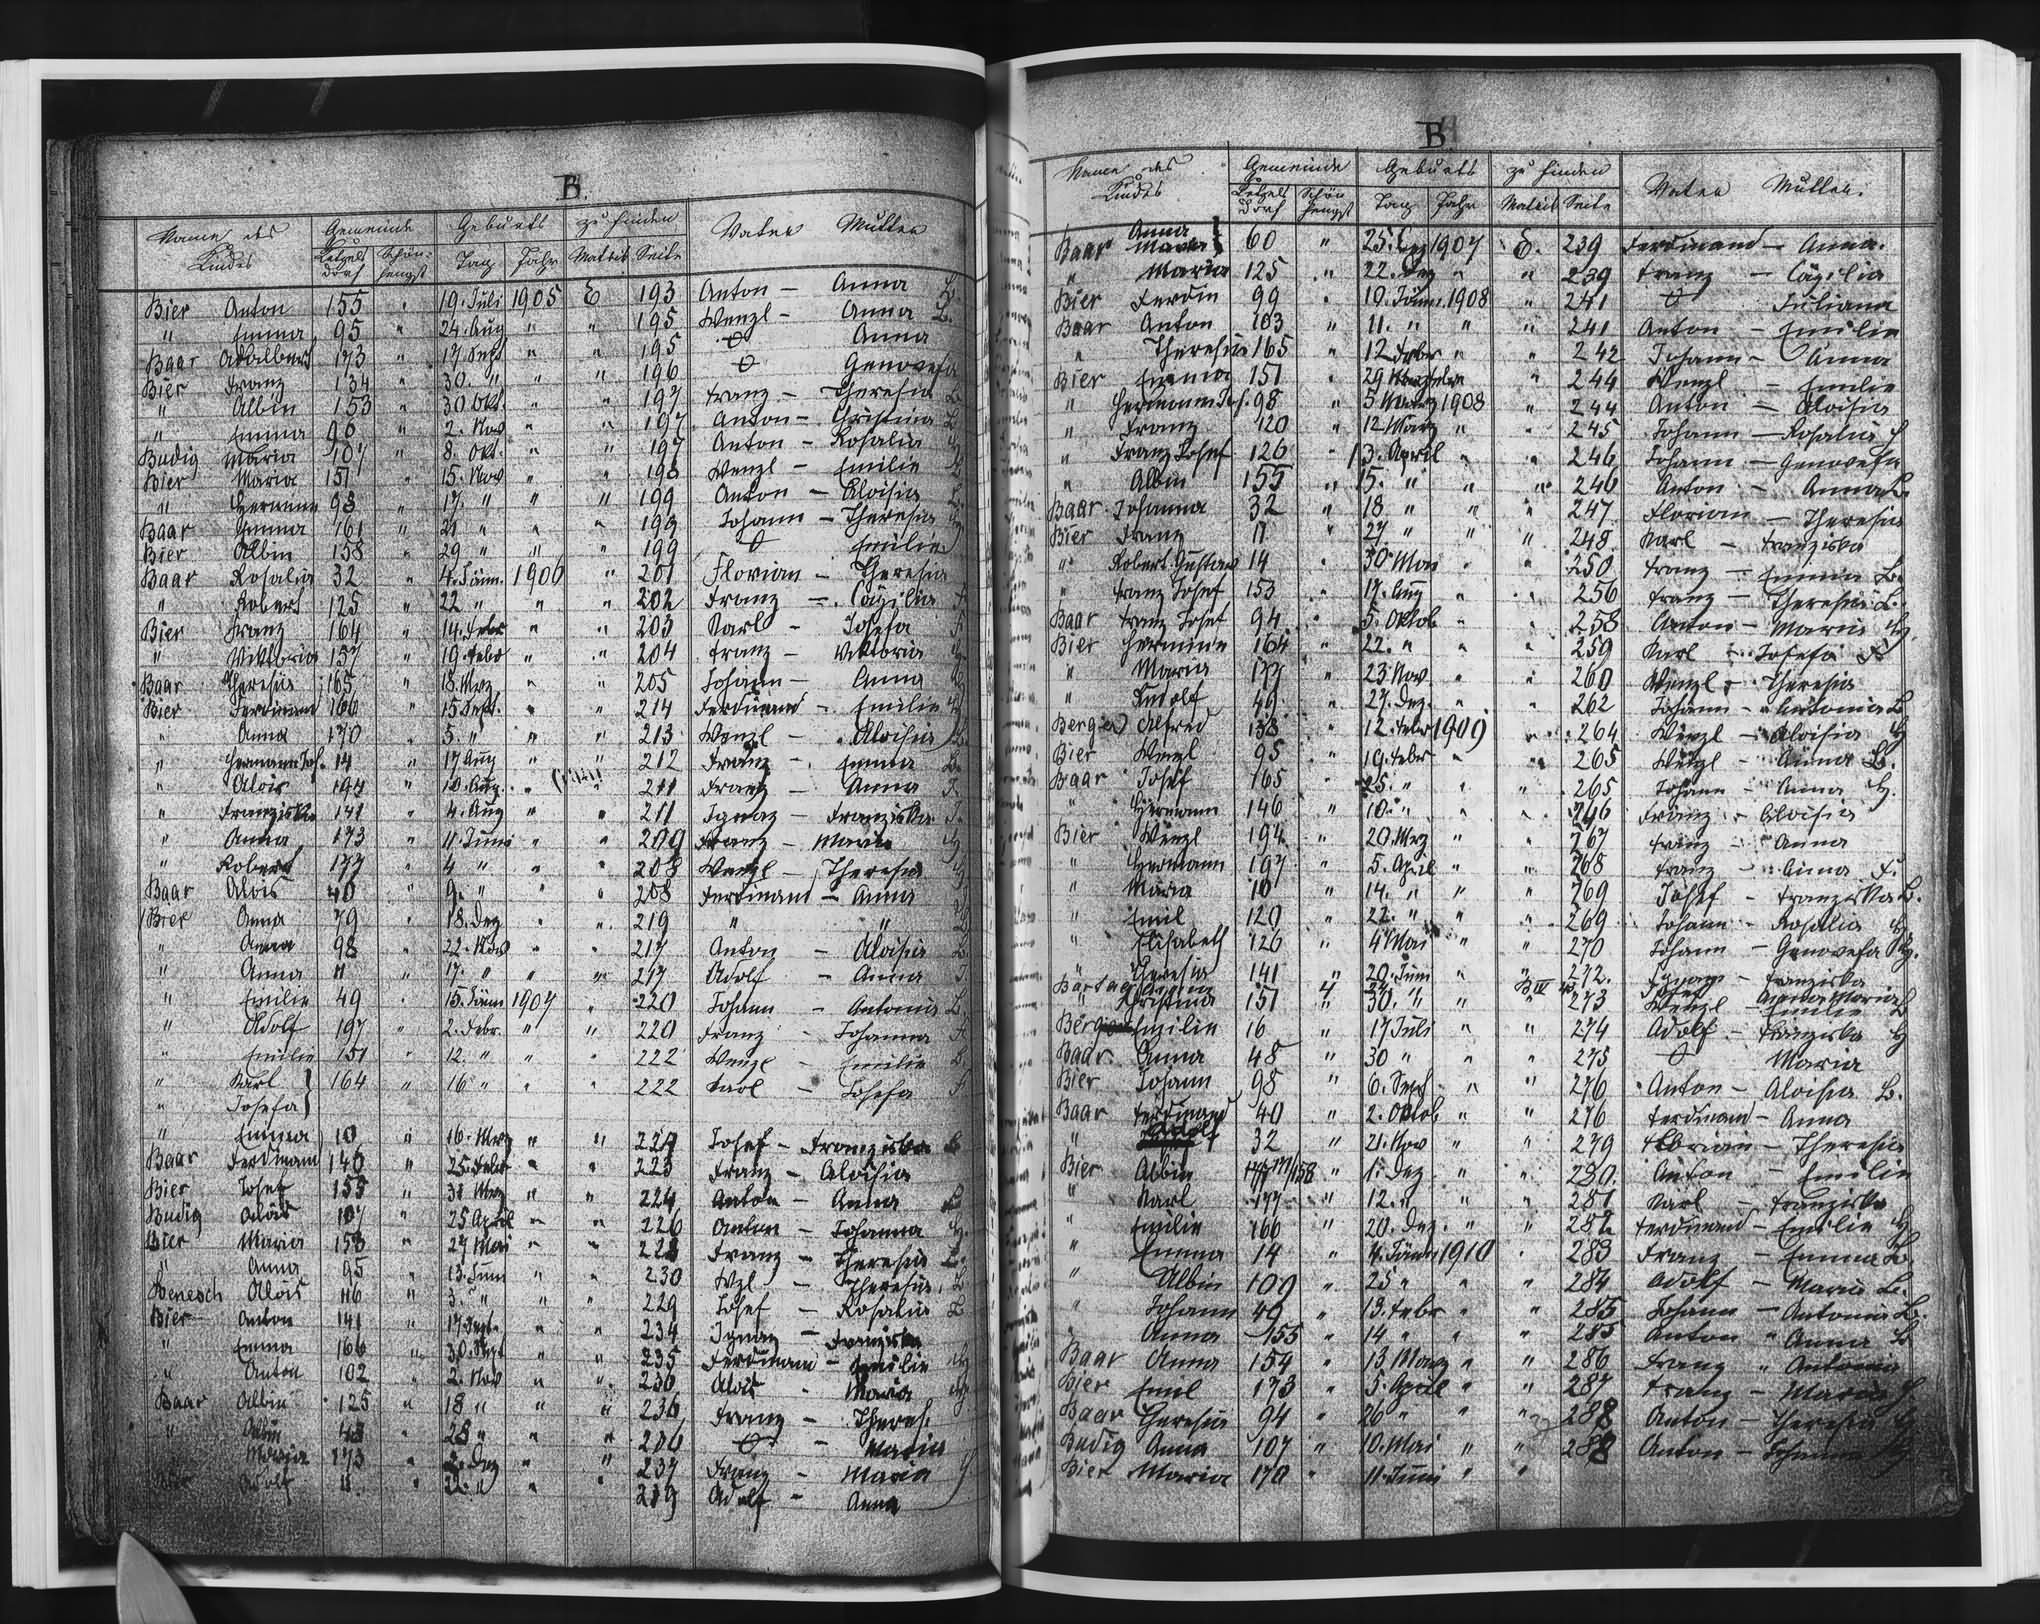 B.
Name des Kindes Gemeinde Geburts zu finden Vater Mutter
Letzeldorf Schönhengst Tag Jahr Matrik Seite
Bier Anton 155 " 19. Juli 1905 E 193 Anton - Anna
" Emma 95 " 24. Aug " " 195 Wenzl - Anna B.
Baar Adalbert 173 " 17. Sept " " 195 O Anna
Bier Franz 134 " 30. " " " 196 O Genovefa
" Albin 153 " 30 Okt. " " 197 Franz - Theresia
" Emma 98 " 2. Nov " " 197 Anton - Christina
Budig Maria 107 " 8. Okt. " " 197 Anton - Rosalia
Bier Maria 151 " 15. Nov " " 198 Wenzl - Emilie
" Hermine 93 " 17. " " " 199 Anton - Aloisia
Baar Emma 161 " 21 " " " 199 Johann - Theresia
Bier Albin 158 " 29 " " " 199 O Emilie
Baar Rosalia 32 " 4. Jänn. 1906 " 201 Florian - Theresia
" Robert 125 " 22 " " " 202 Franz - Cäzilia
Bier Franz 164 " 14. Febr " " 203 Karl - Josefa
" Viktoria 157 " 19. Febr " " 204 Franz - Viktoria
Baar Theresia 165 " 18. Mrz " " 205 Johann - Anna
Bier Ferdinand 166 " 15. Sept. " " 214 Ferdinand - Emilie
" Anna 170 " 5. " " " 213 Wenzl - Aloisia
" Hermann Jos. 14 " 17 Aug " " 212 Franz - Emma
" Alois 194 " 10. Aug. " " 211 Franz - Anna
" Franziska 141 " 4. Aug " " 211 Ignaz - Franziska
" Anna 173 " 11. Juni " " 209 Franz - Maria
" Robert 177 " 4 " " " 208 Wenzl - Theresia
Baar Alois 40 " 9. " " " 208 Ferdinand - Anna
Bier Anna 79 " 18. Dez " " 219 " "
" Anna 98 " 22. Nov " " 217 Anton - Aloisia
" Anna 11 " 17. " " " 217 Adolf - Anna
" Emilie 49 " 15. Jänn 1907 " 220 Johann - Antonia
" Adolf 197 " 2. Febr. " " 220 Franz - Johanna
" Emilie 151 " 12. " " " 222 Wenzl - Emilie
" Karl } 164 " 16 " " " 222 Karl - Josefa
" Josefa }
" Emma 10 " 16. Merz " " 224 Josef - Franziska
Baar Ferdinand 146 " 25. Febr " " 223 Franz - Aloisia
Bier Josef 155 " 31 Mrz " " 224 Anton - Anna
Budig Alois 107 " 25 April " " 226 Anton - Johanna
Bier Maria 153 " 27 Mai " " 228 Franz - Theresia
" Anna 95 " 13. Juni " " 230 Wzl - Theresia
Benesch Alois 116 " 3. " " " 229 Josef - Rosalia
Bier Anton 141 " 17. Sept. " " 234 Ignaz - Franziska
" Emma 166 " 30. Sept " " 235 Ferdinand - Emilie
" Anton 102 " 2. Nov " " 236 Alois - Maria
Baar Albin 125 " 18 " " " 236 Franz - Theres.
" 48 " 28 " " " O - Maria
Maria 173 " 2. Dez " " 237 Franz - Maria
Adolf 11. " 22. " " " 239 Adolf - Anna
B
Name des Kindes Gemeinde Geburts zu finden Vater Mutter.
Letzeldorf Schönhengst Tag Jahr Matrik Seite
Baar Anna Maria } 60 " 25. Dez 1907 E. 239 Ferdinand - Anna.
" Maria 125 " 22. Dez " " 239 Franz - Cäzilia
Bier Ferdin 99 " 19. Jänn. 1908 " 241 O Juliana
Baar Anton 103 " 11. " " " 241 Anton - Emilie
" Theresia 165 " 12 Febr " " 242 Johann - Anna
Bier Emma 151 " 29 " 244 Wenzl - Emilie
" Hermann Jos. 98 " 5 März 1908 " 244 Anton - Aloisia
" Franz 120 " 12 März " " 245 Johann - Rosalia
" Franz Josef 126 " 13. April " " 246 Johann - Genovefa
" Albin 155 " 15. " " " 246 Anton - Anna B.
Baar Johanna 32 " 18 " " " 247 Florian - Theresia
Bier Franz 11 " 27. " " " 248 Karl - Franziska
" Robert Gustav 14 " 30 Mai " " 250 Franz - Emma B.
" Franz Josef 153 " 17. Aug " " 256 Franz - Theresia B.
Baar Franz Josef 94 " 5. Oktob " " 258 Anton - Maria
Bier Hermine 164 " 22. " " " 259 Karl - Josefa
" Maria 177 " 23 Nov. " " 260 Wenzl - Theresia
" Rudolf 49 " 27. Dez. " " 262 Johann - Antonia B
Berger Alfred 138 " 12. Febr 1909 " 264 Wenzl - Aloisia
Bier Wenzl 95 " 19. Febr " " 265 Wenzl - Anna B.
Baar Josef 165 " 25. " " " 265 Johann - Anna
" Hermann 146 " 10. " " " 266 Franz - Aloisia
Bier Wenzl 194 " 20. Mrz " " 267 Franz - Anna
" Hermann 197 " 5. April " " 268 Franz - Anna F.
" Maria 10 " 14. " " " 269 Josef - Franziska B.
" Emil 120 " 22. " " " 269 Johann - Rosalia
" Elisabeth 126 " 4 Mai " " 270 Johann - Genovefa
" Theresia 141 " 20. Juni " " 272. Ignaz - Franziska
Bartag 4 27. " B IV Maria
" Christina 151 " 30. " " " 273 Wenzl - Emilie
Berger Emilie 16 " 17 Juli " " 274 Adolf - Franziska
Baar Anna 48 " 30 " " " 275 O Maria
Bier Johann 98 " 6. Sept " " 276 Anton - Aloisia B.
Baar Ferdinand 40 " 2. Oktob " " 276 Ferdinand - Anna
" Adolf 32 " 21. Nov " " 279 Florian - Theresia
Bier Albin 158 " 1. Dez " " 280. Anton - Emilie
" Karl 177 " 12. " " " 281 Karl - Franziska
" Emilie 166 " 20. Dez. " " 282 Ferdinand - Emilie
" Emma 14 " 4. Jänn 1910 " 283 Franz - Emma B.
" Albin 109 " 25 " " " 284 Adolf - Maria B.
" Johann 49 " 13. Febr " " 285 Johann - Antonia B.
" Anna 155 " 14 " " " 285 Anton " Anna B
Baar Anna 154 " 13 März " " 286 Franz " Antonia
Bier Emil 173 " 5. April " " 287 Franz - Maria
Baar Theresia 94 " 26 " " " 288 Anton - Theresia
Budig Anna 107 " 10. Mai " " 288 Anton - Johanna
Bier Maria 170 " 11. Juni " "